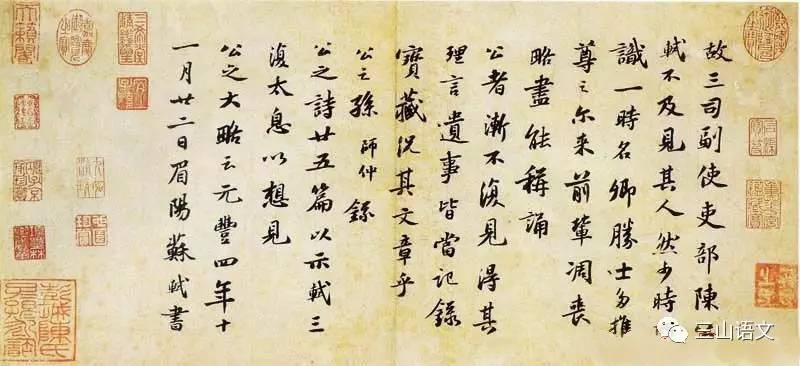 故三司副使吏部陳
軾不及見其人然少時
識一時名卿勝士多推
尊之尔来前輩凋喪
略盡能稱誦
公者漸不復見得其
理言遺事皆當記錄
寶藏況其文章乎
公之孫師仲錄
公之詩廿五篇以示軾三
復太息以想見
公之大略云元豐四年十
一月廿二日眉陽蘇軾書
天籟閣
三希堂精鑑璽
宜子孫
山语文